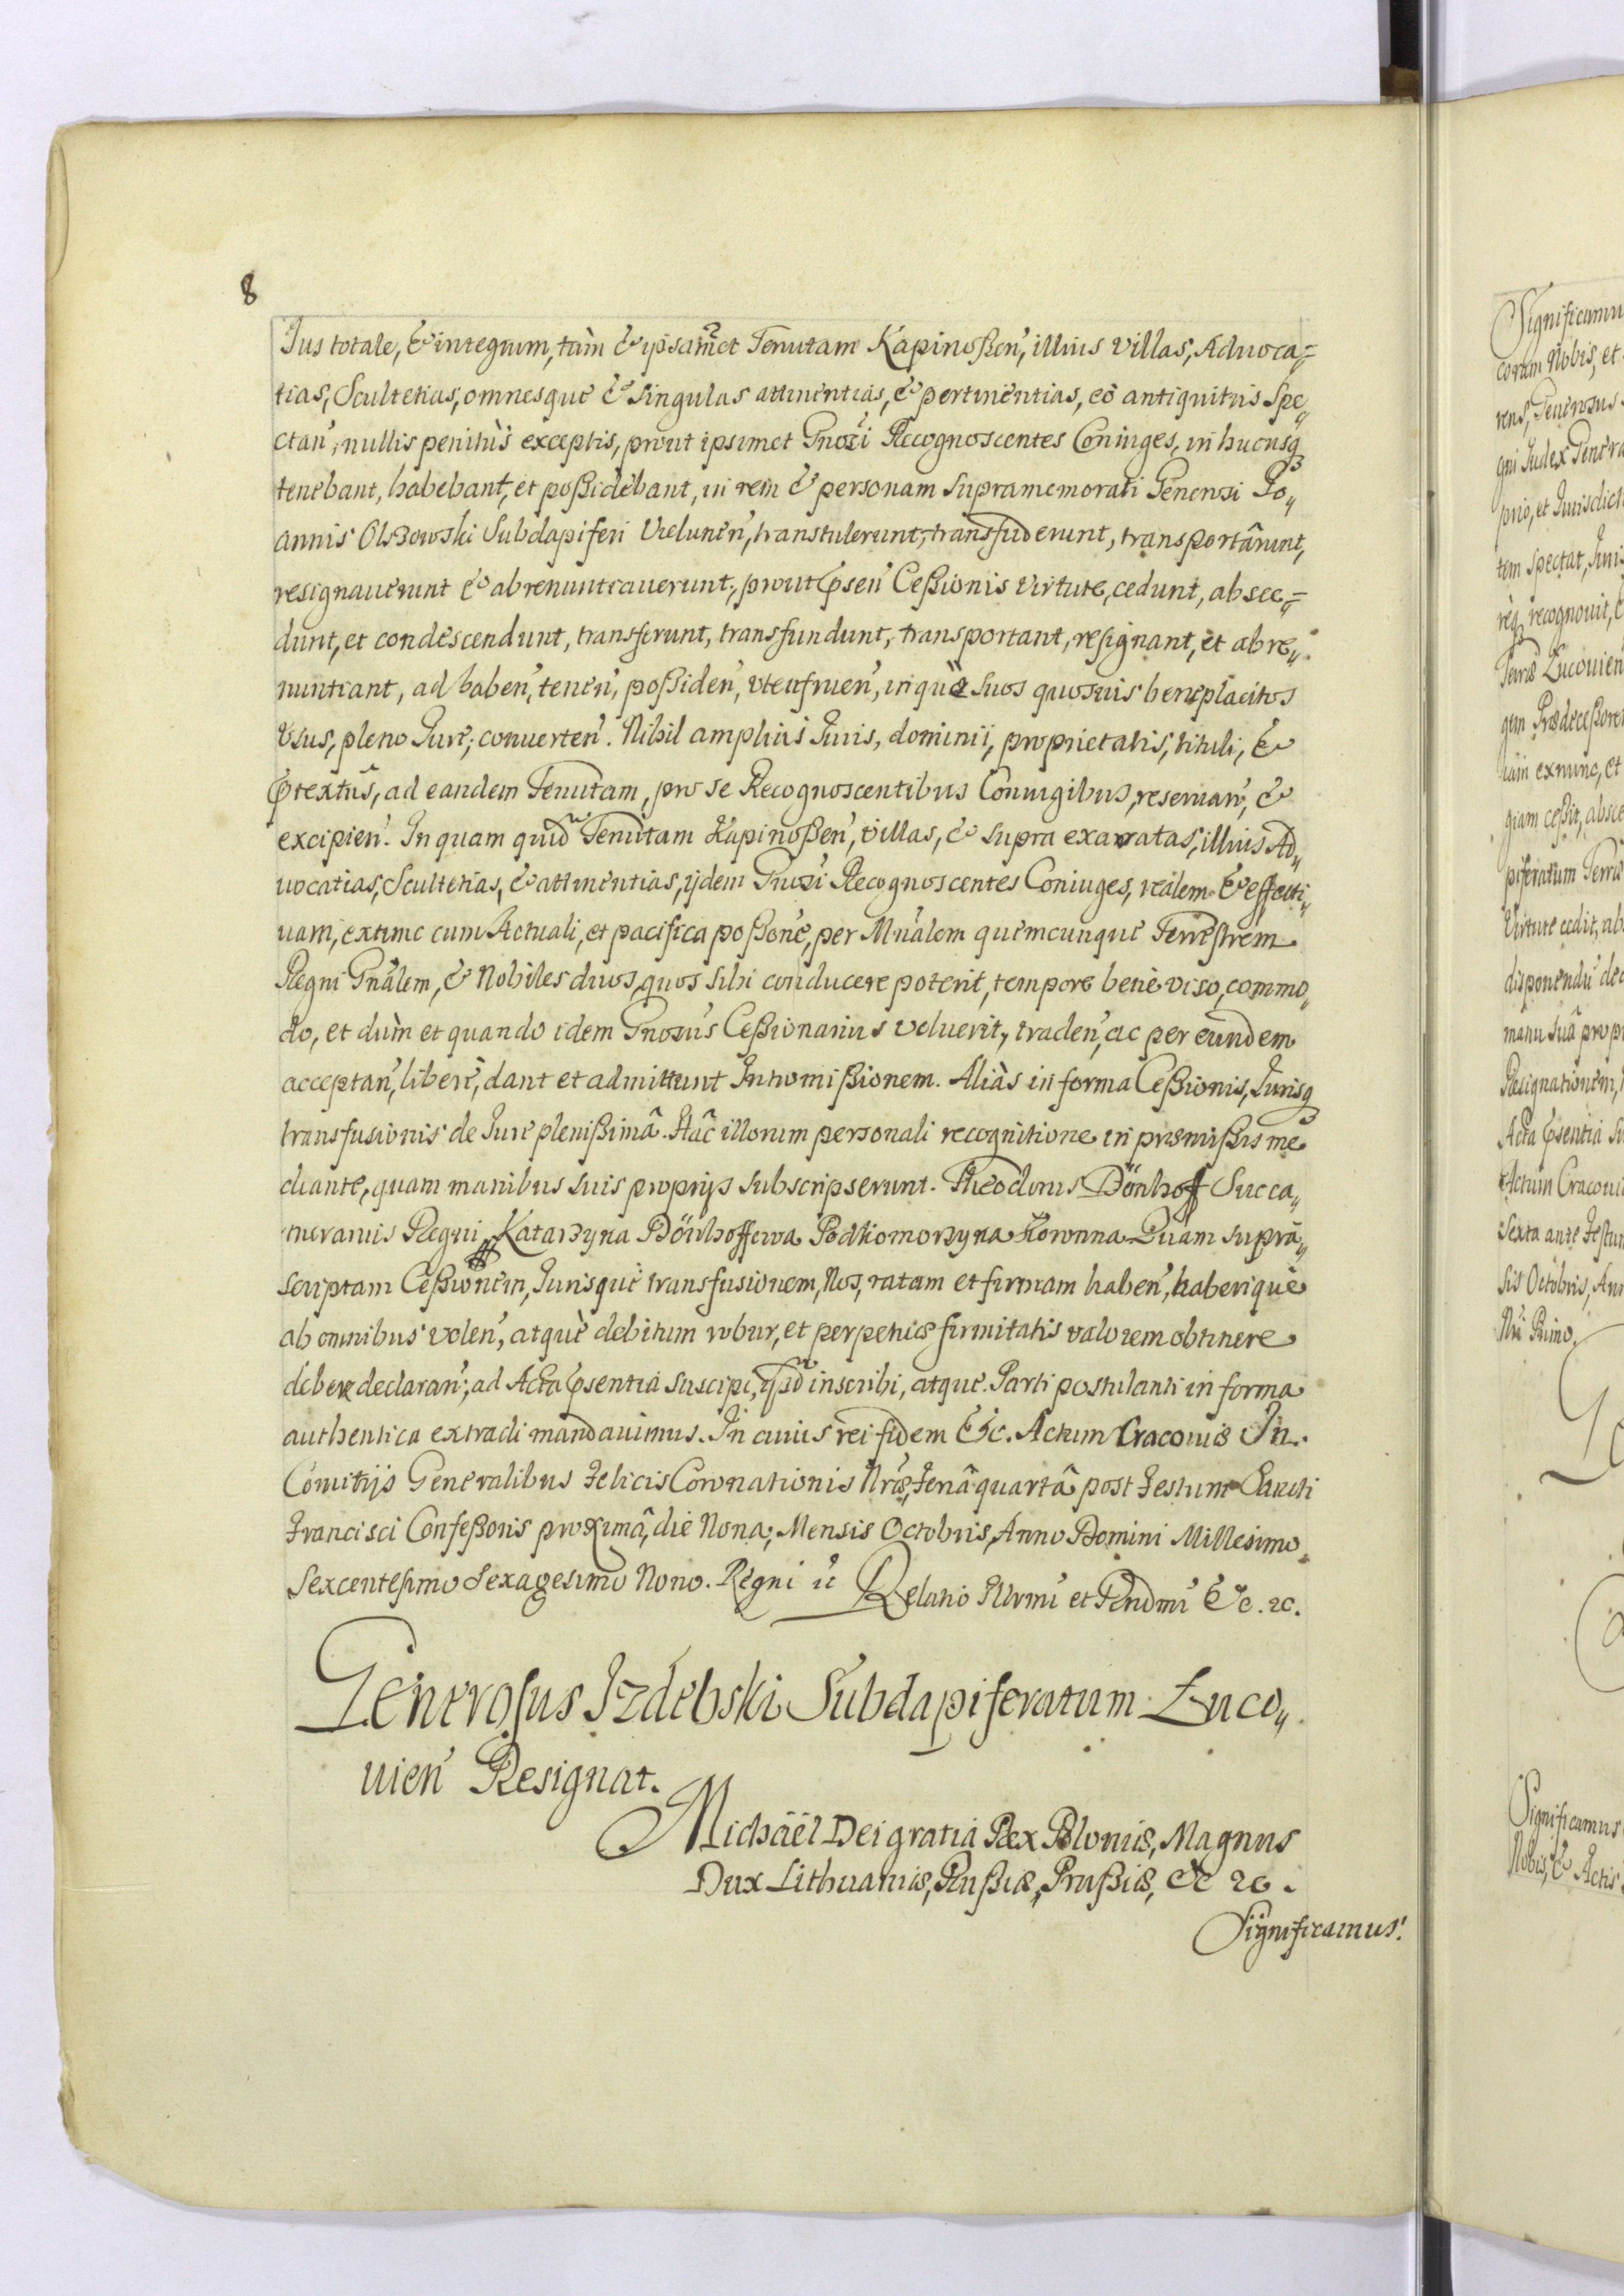 8
Jus totale, & integrum, tàm & ipsammet Tenutam Kapinoßen, illius villas, Aduoca=
tias, Scultetias, omnesque & singulas attinentias, & pertinentias, eò antiquitus Spe„
ctan, nullis penitùs exceptis, prout ipsimet Gnosi Recognoscentes Coniuges, in hucusq3
tenebant, habebant, et poßidebant, in rem & personam supramemorati Generosi Jo„
annis Olszowski Subdapiferi Vielunen, transtulerunt, transfuderunt, transportârunt,
resignauerunt & abrenuntiauerunt, prout psen Ceßionis virtute, cedunt, absce=
dunt, et condescendunt, transferunt, transfundunt, transportant, resignant, et abre„
nuntiant, ad haben, tenen, poßiden, vtenfruen, inquè suos quosuis beneplacitos
vsus, pleno Jure, conuerten. Nihil amplius Juris, dominii, proprietatis, tituli, &
ptextûs, ad eandem Tenutam, pro se Recognoscentibus Coniugibus, reseruan, &
excipien. In quam quid Tenutam Kapinoßen, villas, & supra exaratas, illius Ad„
uocatias, Scultetias, & attinentias, ijdem Gnosi Recognoscentes Coniuges, realem & effecti„
uam, extunc cum Actuali, et pacifica poßone, per Mnalem quemcunque Terrestrem
Regni Gnalem, & Nobiles duos, quos sibi conducere poterit, tempore benè viso, commo„
do, et dùm et quando idem Gnosus Ceßionarius voluerit, traden, ac per eundem
acceptan, liberè, dant et admittunt Intromißionem. Aliàs in forma Ceßionis, Jurisq3
transfusionis de Jure plenißimâ. Hâc illorum personali recognitione in præmißis me
diante, quam manibus suis proprijs subscripserunt. Theodorus Dönhoff Succa„
merarius Regni, Katarzyna Dönhoffowa Podkomorzyna Koronna. Quam suprà„
scriptam Ceßionem, Jurisquè transfusionem, Nos, ratam et firmam haben, haberiquè
ab omnibus volen, atquè debitum robur, et perpetuæ firmitatis valorem obtinere
debere declaran; ad Acta psentia suscipi, ijsd inscribi, atque Parti postulanti in forma
authentica extradi mandauimus. In cuius rei fidem &c. Actum Cracouiæ In
Comitijs Generalibus Felicis Coronationis Nræ, Feriâ quartâ post Festum Sancti
Francisci Confeßoris proximâ, die Nona, Mensis Octobris, Anno Domini Millesimo
Sexcentesimo Sexagesimo Nono. Regni ii Relatio Illrmi et Rendmi &c. 2c.
Generosus Izdebski Subdapiferatum Luco„
uien Resignat.
Michaël Dei gratia Rex Poloniæ, Magnus
Dux Lithuaniæ, Rußiæ, Prußiæ, &c 2c.
Significamus.
Significamus
coram Nobis, et
rens, Generosus
gni Judex Genera
prio, et Jurisdict
tem spectat, Juris
req3 recognouit, &
Terræ Lucouien
gem Prædeceßorem
iam exnunc, et
giam ceßit, absce
piferatum Terræ
Virtute cedit, ab
disponendi dec
manu suâ prop
Resignationem,
Acta psentia su
Actum Cracouiæ
sexta ante Festum
sis Octobris, Ann
Nri Primo.
Significamus
Nobis, & Actis